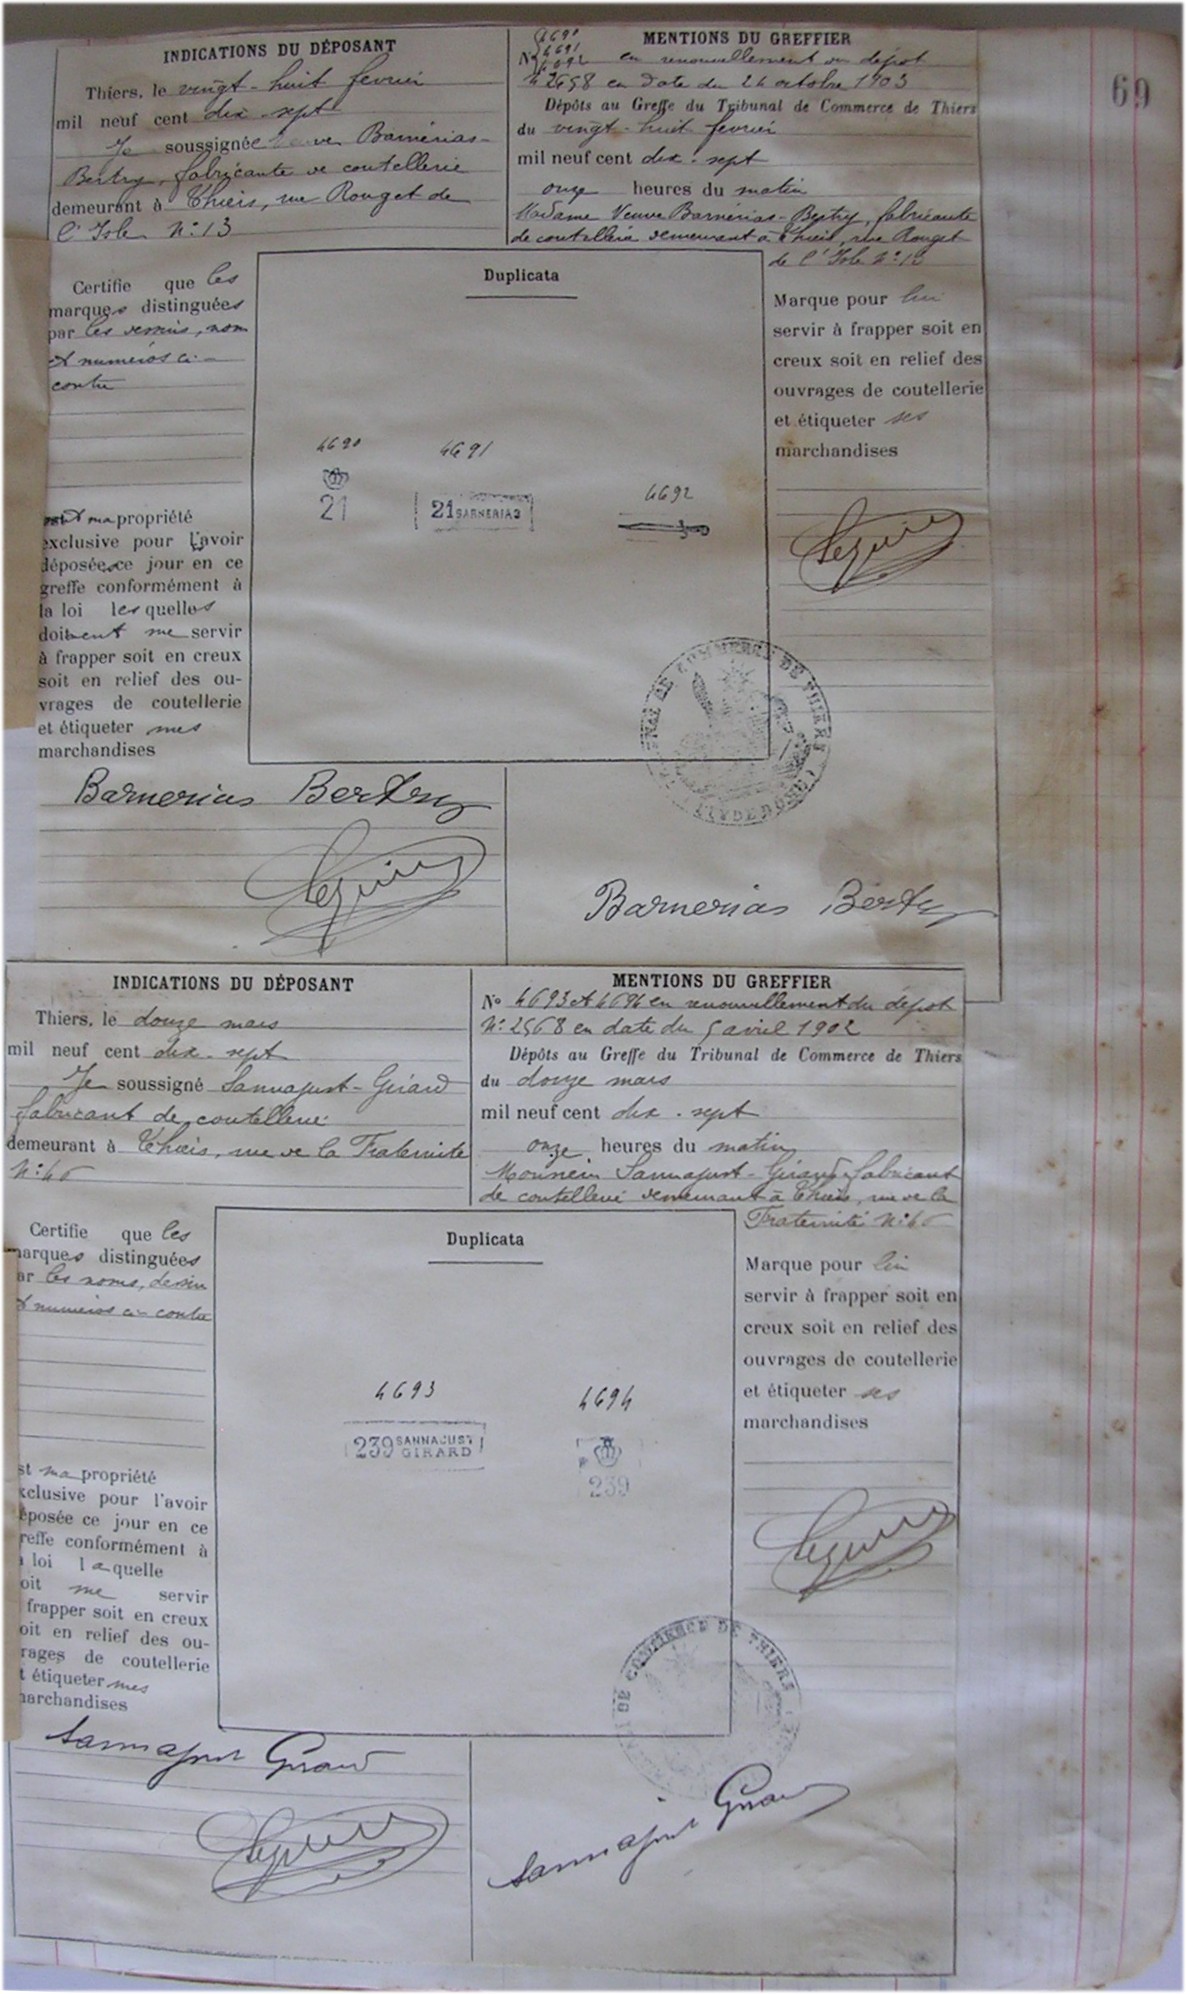 69
INDICATIONS DU DÉPOSANT
Thiers, le vingt-huit fevrier
mil neuf cent dix-sept
Je soussignée Veuve Barnérias-
Bertry, fabricante de coutellerie
demeurant à Thiers, rue Rouget de
l'Isle N°: 13
MENTIONS DU GREFFIER
4690
4691
N° 4692 en renouvellement du dépot
N° 2658 en date du 24 octobre 1903
Dépôts au Greffe du Tribunal de Commerce de Thiers
du vingt-huit fevrier
mil neuf cent dix-sept
onze heures du matin
Madame Veuve Barnérias-Bertry, fabricante
de coutellerie demeurant à Thiers, rue Rouget
de l'Isle N°: 13
Certifie que les
marques distinguées
par les dessins, nom
et numéros ci-
contre
sont ma propriété
exclusive pour l'avoir
déposées ce jour en ce
greffe conformément à
la loi lesquelles
doivent me servir
à frapper soit en creux
soit en relief des ou-
vrages de coutellerie
et étiqueter mes
marchandises
Duplicata
4690
21
4691
21 BARNERIAS
4692
Marque pour lui
servir à frapper soit en
creux soit en relief des
ouvrages de coutellerie
et étiqueter ses
marchandises
DE COMMERCE DE THIERS
Barnerias Bertry
Barnerias Bertry
INDICATIONS DU DÉPOSANT
Thiers, le douze mars
mil neuf cent dix-sept
Je soussigné Sannajust-Girard
fabricant de coutellerie
demeurant à Thiers, rue de la Fraternité
MENTIONS DU GREFFIER
N° 4693 et 4694 en renouvellement du dépot
N°: 2568 en date du 5 avril 1902
Dépôts au Greffe du Tribunal de Commerce de Thiers
du douze mars
mil neuf cent dix-sept
onze heures du matin
Monsieur Sannajust-Girard fabricant
de coutellerie demeurant à Thiers, rue de la
Fraternité
Certifie que les
marques distinguées
ar les noms, dessin
et numéros ci-contre
st ma propriété
xclusive pour l'avoir
éposée ce jour en ce
reffe conformément à
loi laquelle
oit me servir
frapper soit en creux
oit en relief des ou-
rages de coutellerie
t étiqueter mes
archandises
Duplicata
4693
239 SANNAJUST
GIRARD
4694
239
Marque pour lui
servir à frapper soit en
creux soit en relief des
ouvrages de coutellerie
et étiqueter ses
marchandises
DE COMMERCE DE THIERS
Sannajust Girard
Sannajust Girard